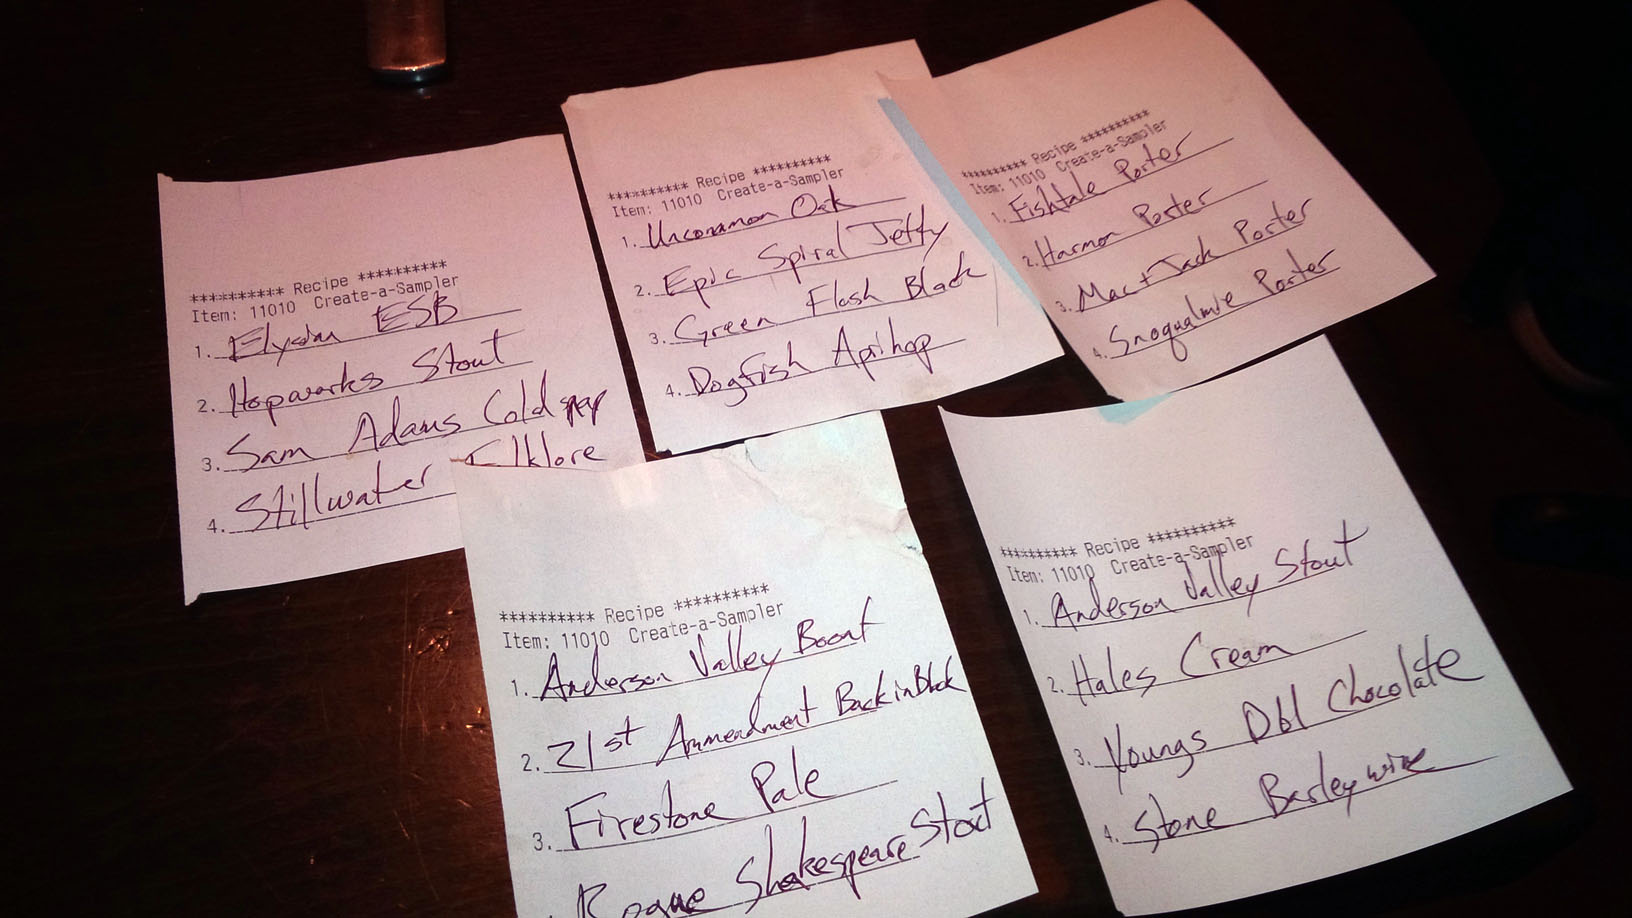 ********** Recipe **********
Item: 11010 Create-a-Sampler
1. Elysian ESB
2. Hopworks Stout
3. Sam Adams Coldsnap
4. Stillwater Folklore
********** Recipe **********
Item: 11010 Create-a-Sampler
1. Uncommon Oak
2. Epic Spiral Jetty
3. Green Flash Black
4. Dogfish Aprihop
********** Recipe **********
Item: 11010 Create-a-Sampler
1. Fishtale Porter
2. Harmon Porter
3. Mac + Jack Porter
4. Snoqualmie Porter
********** Recipe **********
Item: 11010 Create-a-Sampler
1. Anderson Valley Boont
2. 21st Ammendment Back in Black
3. Firestone Pale
Rogue Shakespeare Stout
********** Recipe **********
Item: 11010 Create-a-Sampler
1. Anderson Valley Stout
2. Hales Cream
3. Youngs Dbl Chocolate
4. Stone Barleywine